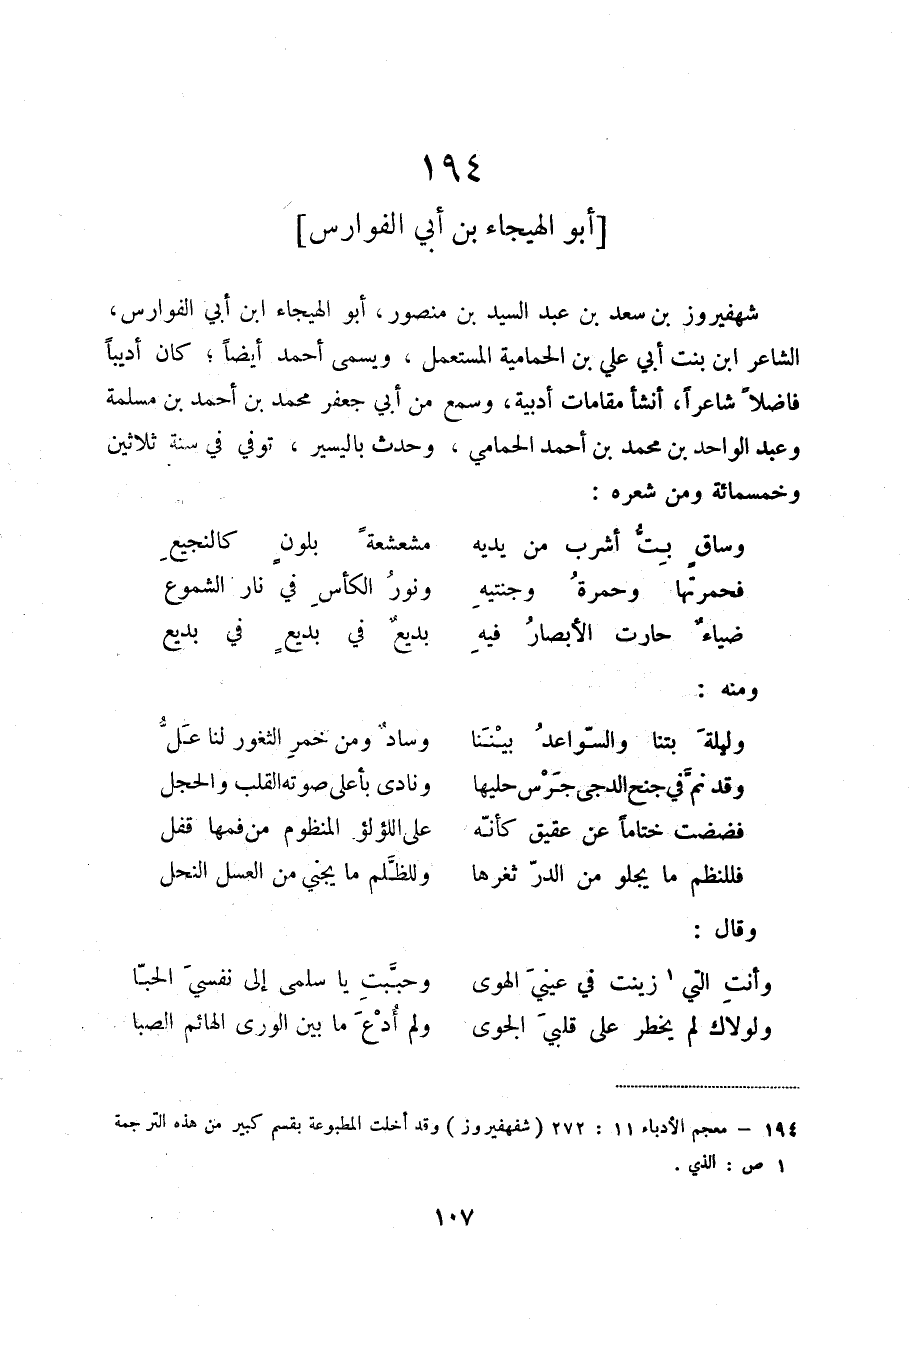 ١٩٤
[أبو الهيجاء بن أبي الفوارس]
شهفيروز بن سعد بن عبد السيد بن منصور، أبو الهيجاء ابن أبي الفوارس،
الشاعر ابن بنت أبي علي بن الحمامية المستعمل ، ويسمى أحمد أيضاً ؛ كان أديباً
فاضلاً شاعراً، أنشأ مقامات أدبية، وسمع من أبي جعفر محمد بن أحمد بن مسلمة
وعبد الواحد بن محمد بن أحمد الحمامي ، وحدث باليسير ، توفي في سنة ثلاثين
وخمسمائة ومن شعره :
وساقٍ بِتُّ أشرب من يديه مشعشعةً بلونٍ كالنجيعِ
فحمرتها وحمرةُ وجنتيهِ ونورُ الكأسِ في نار الشموع
ضياءٌ حارت الأبصارُ فيهِ بديعٌ في بديعٍ في بديع
ومنه :
وليلةَ بتنا والسّواعدُ بيْننَا وسادٌ ومن خمرِ الثغور لنا عَلُّ
وقد نمَّ في جنح الدجى جَرْس حليها ونادى بأعلى صوته القلب والحجل
فضضت ختاماً عن عقيق كأنّه على اللؤلؤ المنظوم من فمها قفل
فللنظم ما يجلو من الدرّ ثغرها وللظَّلم ما يجني من العسل النحل
وقال :
وأنتِ التي ١ زينت في عينيَ الهوى وحبَّبتِ يا سلمى إلى نفسيَ الحبّا
ولولاك لم يخطر على قلبيَ الجوى ولم أُدْعَ ما بين الورى الهائم الصبا
١٩٤ – معجم الأدباء ١١ : ٢٧٢ ( شفهفيروز ) وقد أخلت المطبوعة بقسم كبير من هذه الترجمة
١ ص : الذي .
١٠٧